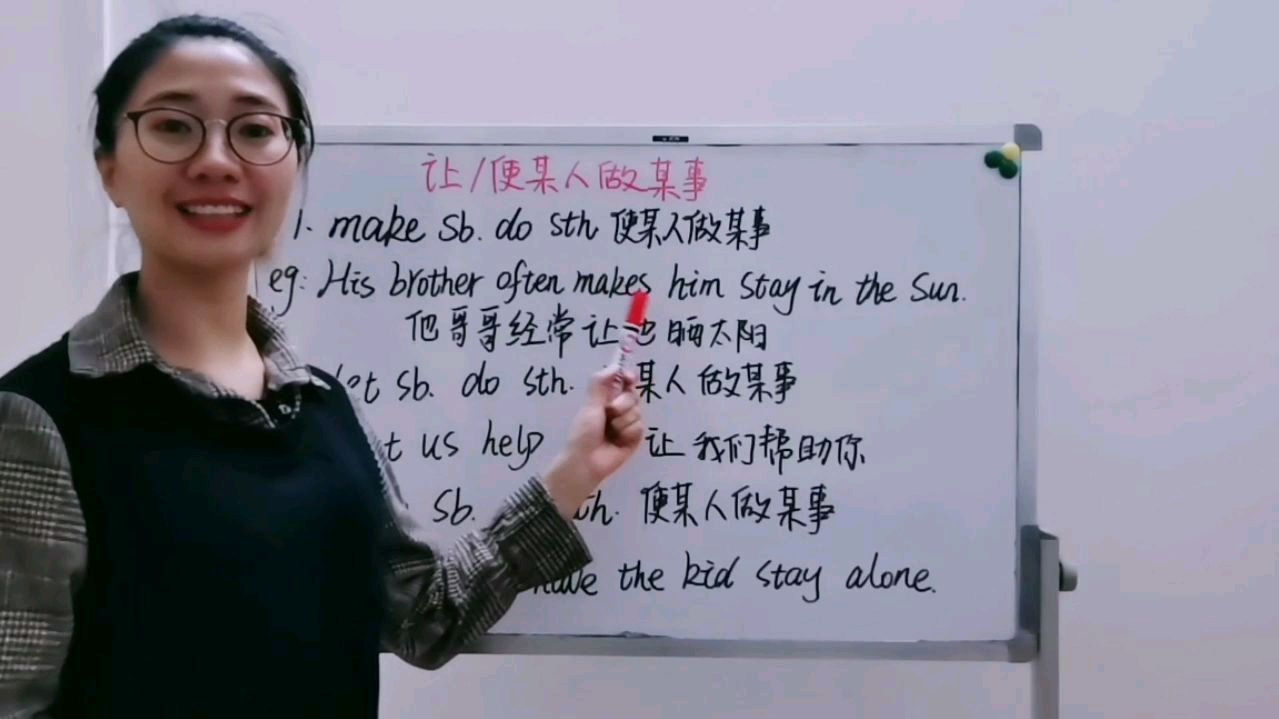 让/使某人做某事
1. make sb. do sth. 使某人做某事
eg: His brother often makes him stay in the sun.
他哥哥经常让他晒太阳
sb. do sth. 某人做某事
us help 让我们帮助你
sb. 使某人做某事
the kid stay alone.